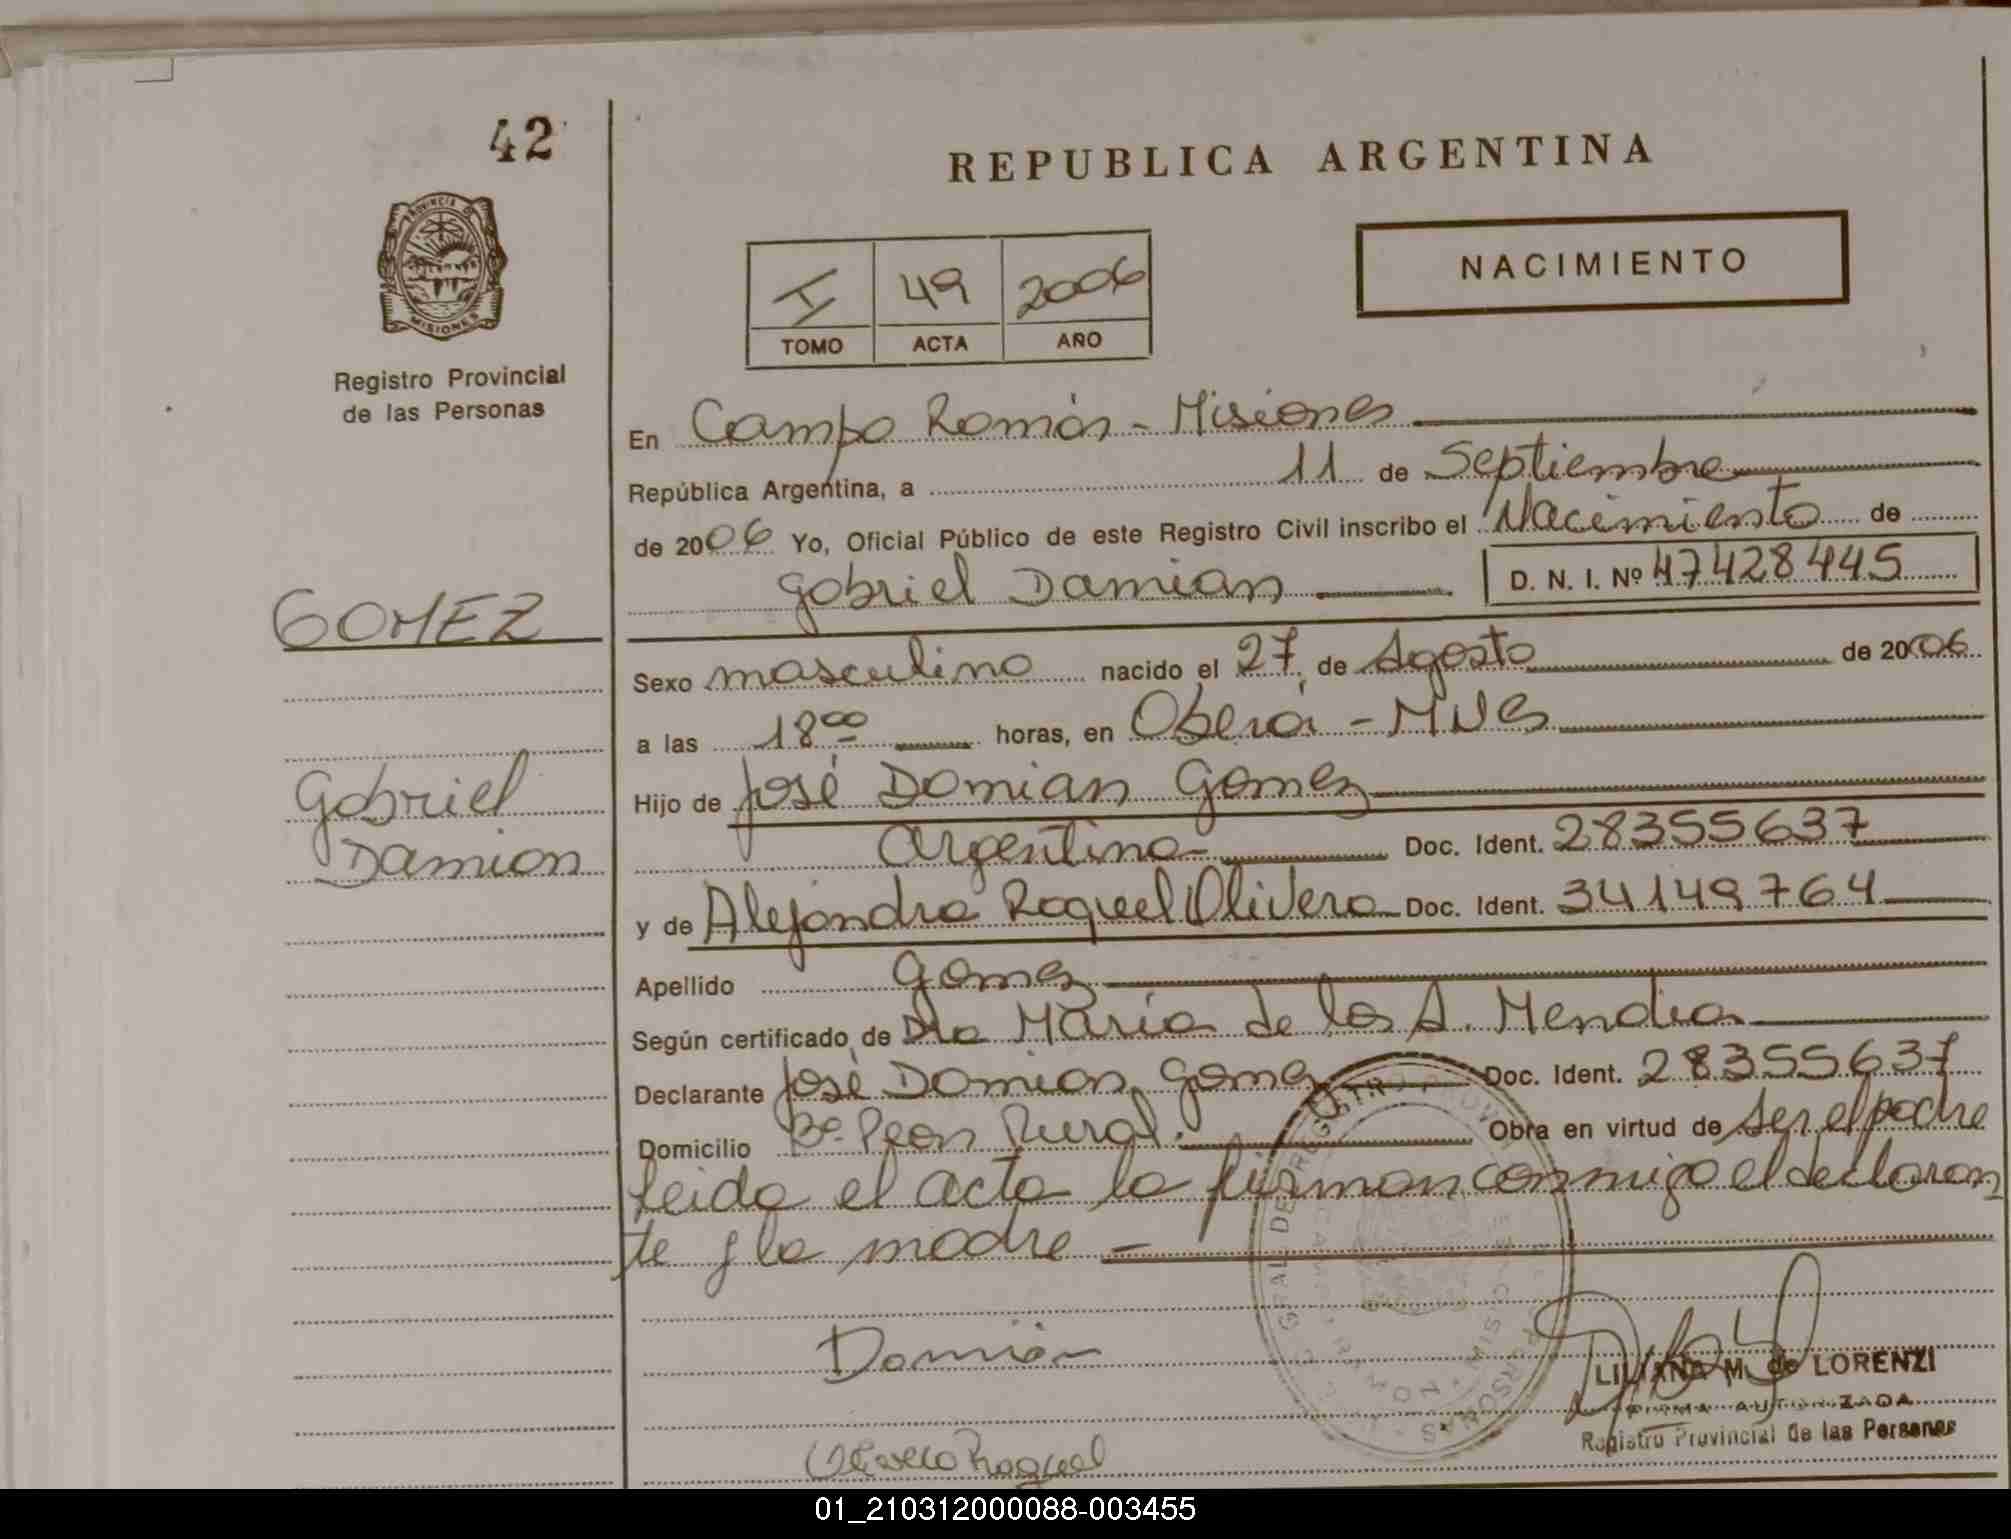 42
REPUBLICA ARGENTINA
PROVINCIA DE
MISIONES
Registro Provincial
de las Personas
I 49 2006
TOMO ACTA AÑO
NACIMIENTO
En Campo Ramón - Misiones
República Argentina, a 11 de Septiembre
de 2006 Yo, Oficial Público de este Registro Civil inscribo el Nacimiento de
Gabriel Damian D. N. I. Nº 47428445
GOMEZ
Sexo masculino nacido el 27 de Agosto de 2006
a las 18 00 horas, en Oberá - MNES
Hijo de José Damian Gomez
Gabriel
Damian
Argentina Doc. Ident. 28355637
y de Alejandra Raquel Olivera Doc. Ident. 34149764
Apellido Gomez
Según certificado de Dra Maria de los A. Mendia
Declarante José Damian Gomez Doc. Ident. 28355637
Domicilio Bº Peon Rural. Obra en virtud de ser el padre
leida el acta la firman conmigo el declaran
te y la madre -
Damián
LILIANA M. de LORENZI
FIRMA AUTORIZADA
Registro Provincial de las Personas
Olivera Raquel
01_210312000088-003455